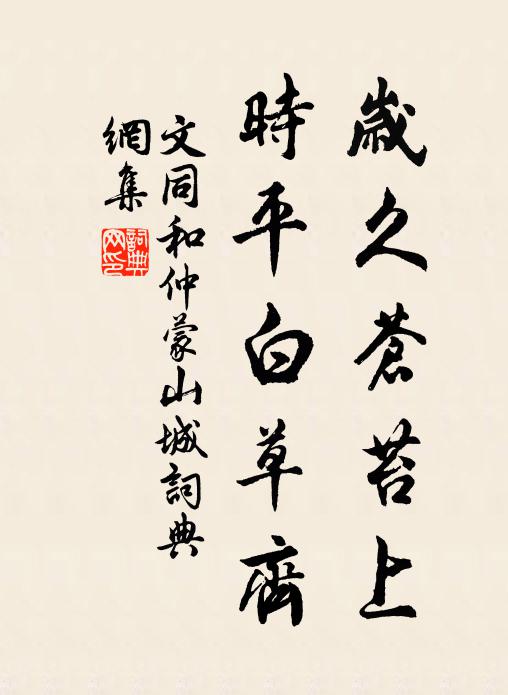 歲久蒼苔上
時平白草齊
文同和仲蒙山城詞典
網集
詞典網印